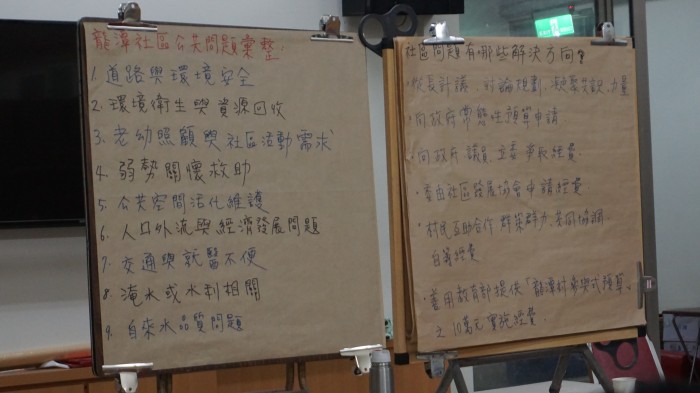 龍潭社區公共問題彙整:
1. 道路與環境安全
2. 環境衛生與資源回收
3. 老幼照顧與社區活動需求
4. 弱勢關懷救助
5. 公共空間活化維護
6. 人口外流與經濟發展問題
7. 交通與就醫不便
8. 淹水或水利相關
9. 自來水品質問題
社區問題有哪些解決方向?
討論規劃、凝聚共識、力量
・向政府常態性預算申請
・向政府、議員、立委爭取經費
・委由社區發展協會申請經費
・村民互助合作 群策群力、共同協調
自籌經費
・善用教育部提供「龍潭村參與式預算」
之10萬元實施經費